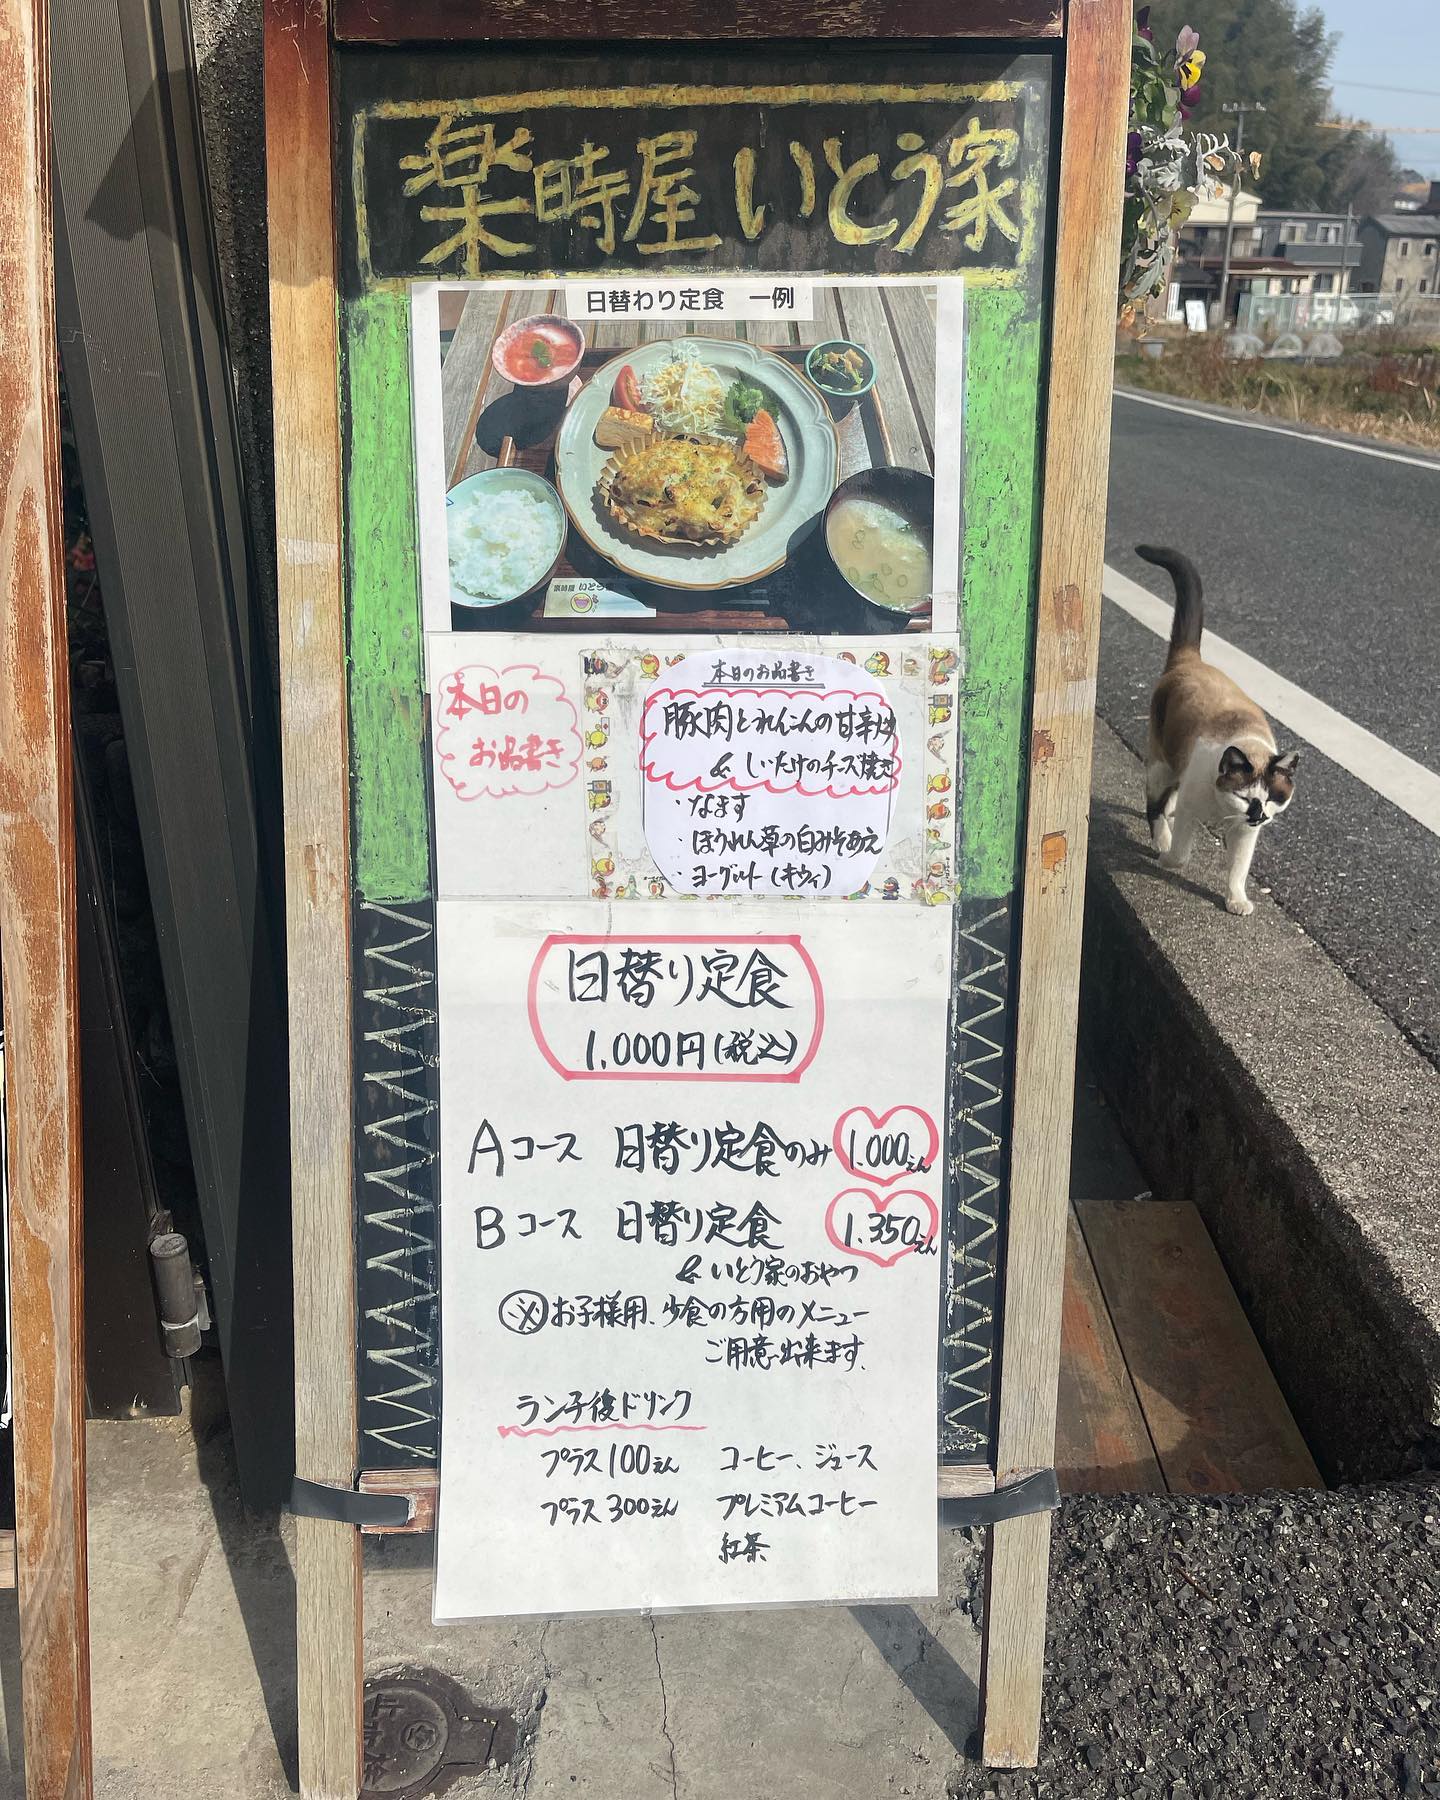 楽時屋 いとう家
日替わり定食 一例
楽時屋 いとう家
本日の
お品書き
本日のお品書き
豚肉とれんこんの甘辛炒
& しいたけのチーズ焼き
・なます
・ほうれん草の白みそあえ
・ヨーグルト(キウィ)
日替り定食
1,000円(税込)
Aコース 日替り定食のみ 1.000えん
Bコース 日替り定食 1.350えん
& いとう家のおやつ
※お子様用、少食の方用のメニュー
ご用意出来ます。
ランチ後ドリンク
プラス100えん コーヒー、ジュース
プラス300えん プレミアムコーヒー
紅茶